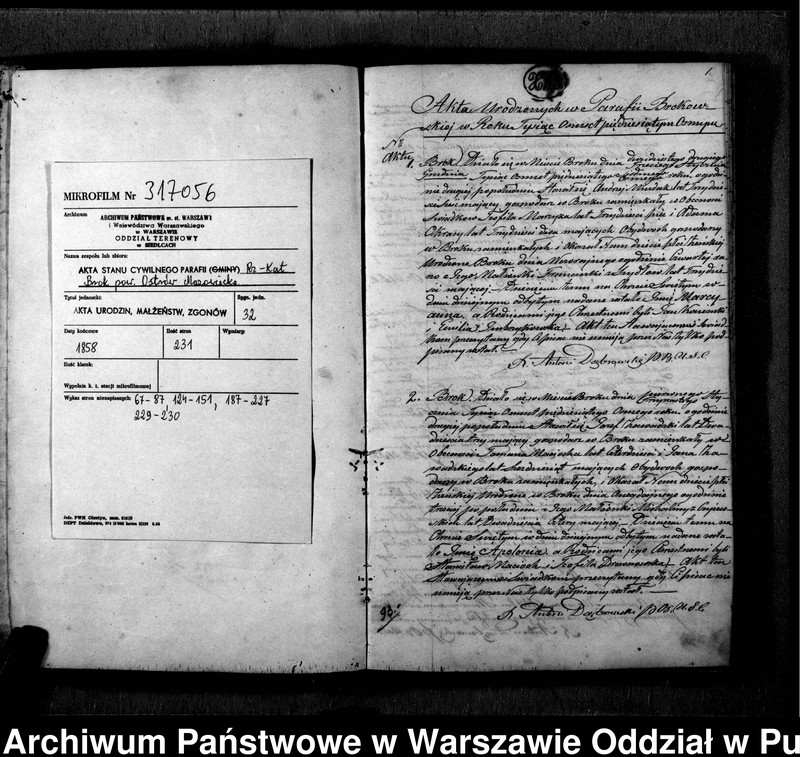 MIKROFILM Nr 317056
Archiwum
ARCHIWUM PAŃSTWOWE m. st. WARSZAWI
i Województwa Warszawskiego
w WARSZAWIE
ODDZIAŁ TERENOWY
w SIEDLCACH
Nazwa zespołu lub zbioru:
AKTA STANU CYWILNEGO PARAFII (GMINY) Rz-Kat
Brok pow. Ostrów Mazowiecka
Tytuł jednostki:
AKTA URODZIN, MAŁŻEŃSTW, ZGONÓW
Sygn. jedn.
32
Daty końcowe
1858
Ilość stron
231
Wymiary:
Ilość klatek:
Wypełnia k. t. stacji mikrofilmowej
Wykaz stron niezapisanych: 67-87 124-151, 187-227
229-230
1.
Akta Urodzonych w Parafii Brokow
skiej w Roku Tysiąc Osmset piędziesiątym Osmym
Nr
Aktu
1. Brok) Działo się w Mieście Broku dnia
Tysiąc Osmset piędziesiątego roku, o godzi
nie drugiej popołudniu Stawił się Andrzej lat Trzydzie
ści mający, gospodarz w Broku zamieszkały w Obecności
Świadków Teofila lat Trzydzieści pięć i Adama
lat Trzydzieści dwa mających Obydwóch gospodarzy
w Broku zamieszkałych i Okazał Nam dziecię płci Żeńskiej
Urodzone w Broku dnia Wczorajszego o godzinie
no z Jego Małżonki lat Trzydzie
ści mającej. Dziecięciu temu na Chrzcie Świętym w
dniu dzisiejszym odbytym nadane zostało Imię Marcy
anna, a Rodzicami jego Chrzestnemi byli Jan
i Ewelia Akt ten Stawającemu i Świad
kom przeczytany gdy Ci pisać nie umieją przez Nas tylko pod
pisany został.
X. Antoni Dąbrowski P.B. U.S.C.
2. Brok. Działo się w Mieście Broku dnia pierwszego Sty
cznia Tysiąc Osmset piędziesiątego Osmego roku, o godzinie
drugiej popołudniu Stawił się Józef Zawadzki lat Dwa
dzieścia trzy mający gospodarz w Broku zamieszkały w
Obecności Tomasza lat Czterdzieści i Jana Za
wadzkiego lat Sześdziesiąt mających Obydwóch gospo
darzy w Broku zamieszkałych, i Okazał Nam dziecię płci
Żeńskiej Urodzone w Broku dnia Onegdajszego o godzinie
trzeciej po południu z Jego Małżonki
lat Dwadzieścia Cztery mającej. Dziecięciu temu na
Chrzcie Świętym w dniu dzisiejszym odbytym nadane zosta
ło Imię Apolonia, a Rodzicami jego Chrzestnemi byli
Stanisław i Teofila Akt ten
Stawającemu i Świadkom przeczytany gdy Ci pisać nie
umieją przez Nas tylko podpisany został.
X. Antoni Dąbrowski P.B. U.S.C.
Archiwum Państwowe w Warszawie Oddział w Pu